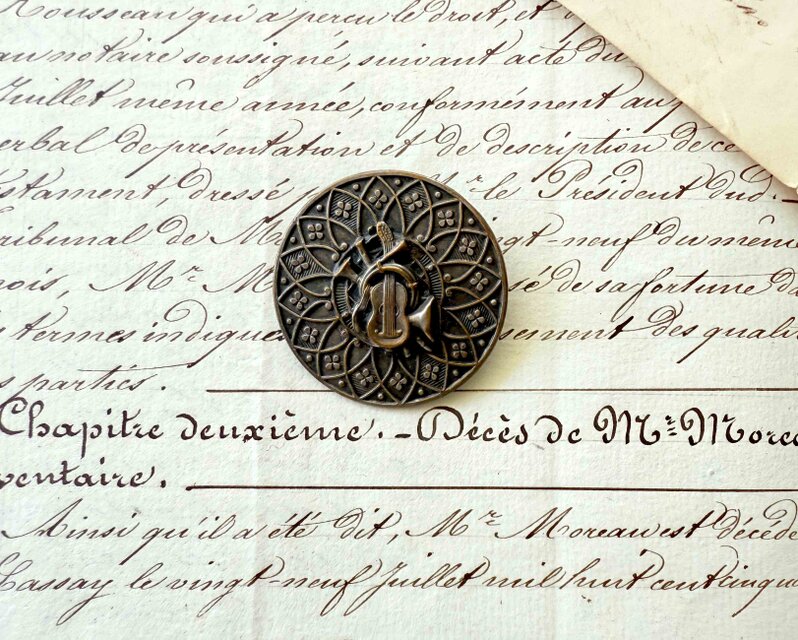 Rousseau qui a perçu le droit, et
au notaire soussigné, suivant acte du
Juillet même année, conformément aux
erbal de présentation et de description de ce
stament, dressé Mr le Président dud.
ribunal de M gt-neuf du même
ois, Mr M sé de sa fortune da
s termes indiqués sement des quali
s parties.
Chapitre deuxième. - Décès de Mr Morea
ventaire.
Ainsi qu'il a été dit, Mr Moreau est décédé
Lassay le vingt-neuf Juillet mil huit cent cinqua